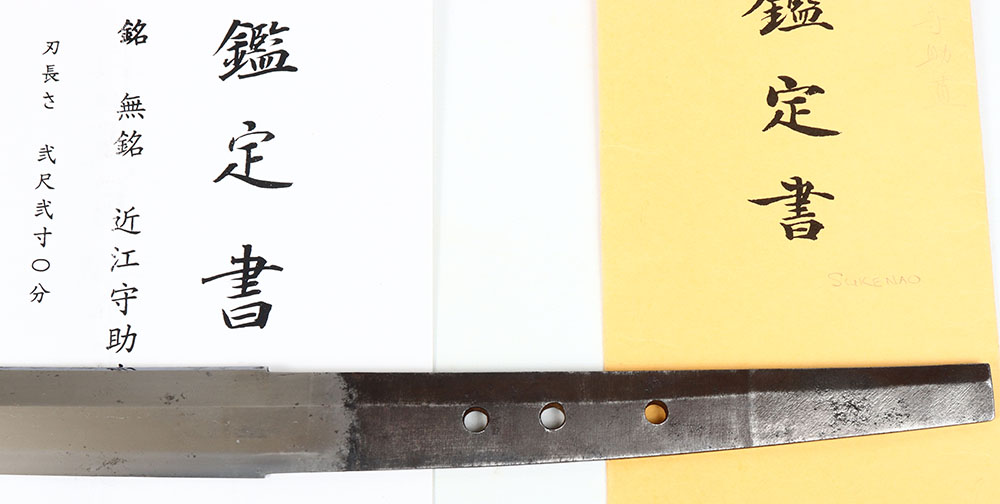 鑑定書
銘 無銘 近江守助
刃長さ 弐尺弐寸〇分
守助直
鑑定書
SUKENAO